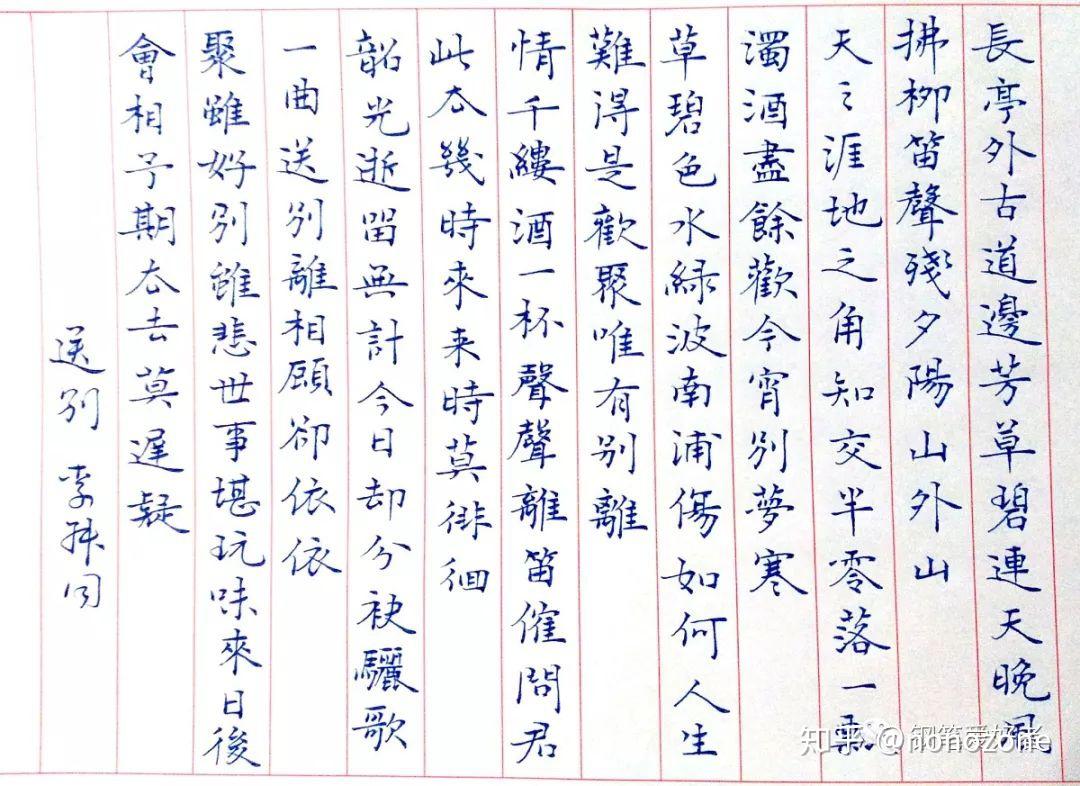 長亭外古道邊芳草碧連天晚風
拂柳笛聲殘夕陽山外山
天之涯地之角知交半零落一瓢
濁酒盡餘歡今宵別夢寒
草碧色水綠波南浦傷如何人生
難得是歡聚唯有別離
情千縷酒一杯聲聲離笛催問君
此去幾時來来時莫徘徊
韶光逝留無計今日却分袂驪歌
一曲送別離相顧卻依依
聚雖好別雖悲世事堪玩味來日後
會相予期去去莫遲疑
送別 李叔同
知乎 @nonozone